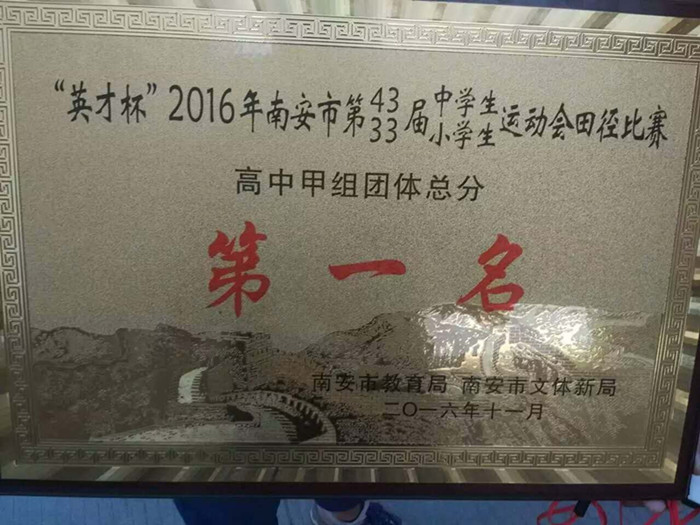 “英才杯”2016年南安市第43届中学生运动会田径比赛
33 小学生
高中甲组团体总分
第一名
南安市教育局 南安市文体新局
二〇一六年十一月